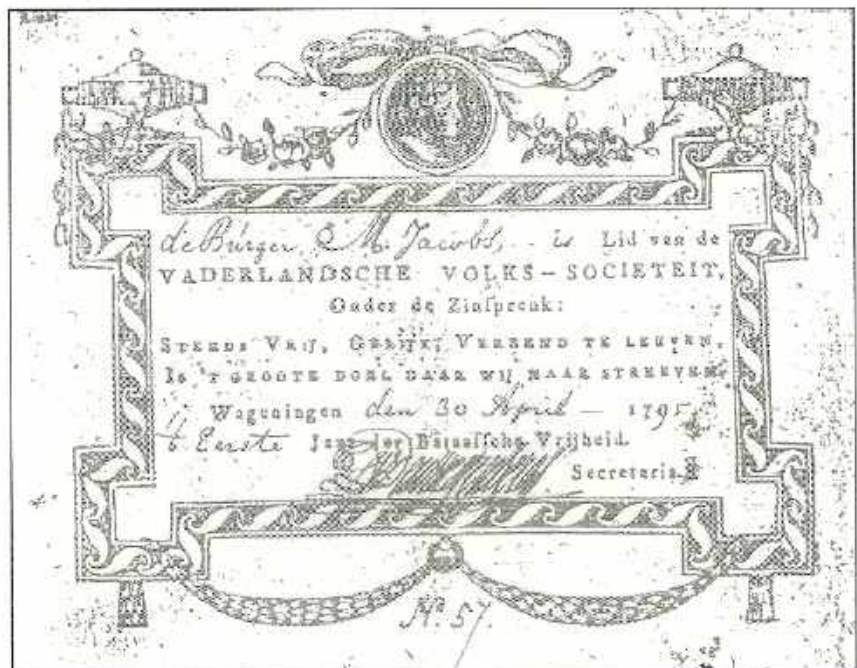 de Burger M. Jacobs, - is Lid van de
VADERLANDSCHE VOLKS-SOCIETEIT,
Onder de Zinspreuk:
STEEDS VRIJ, GELIJK, VEREEND TE LEEVEN,
IS 'T GROOTE DOEL DAAR WIJ NAAR STREEVEN.
Wageningen den 30 April - 1795
't Eerste Jaar der Bataafsche Vrijheid.
Secretaris
N.º 57.